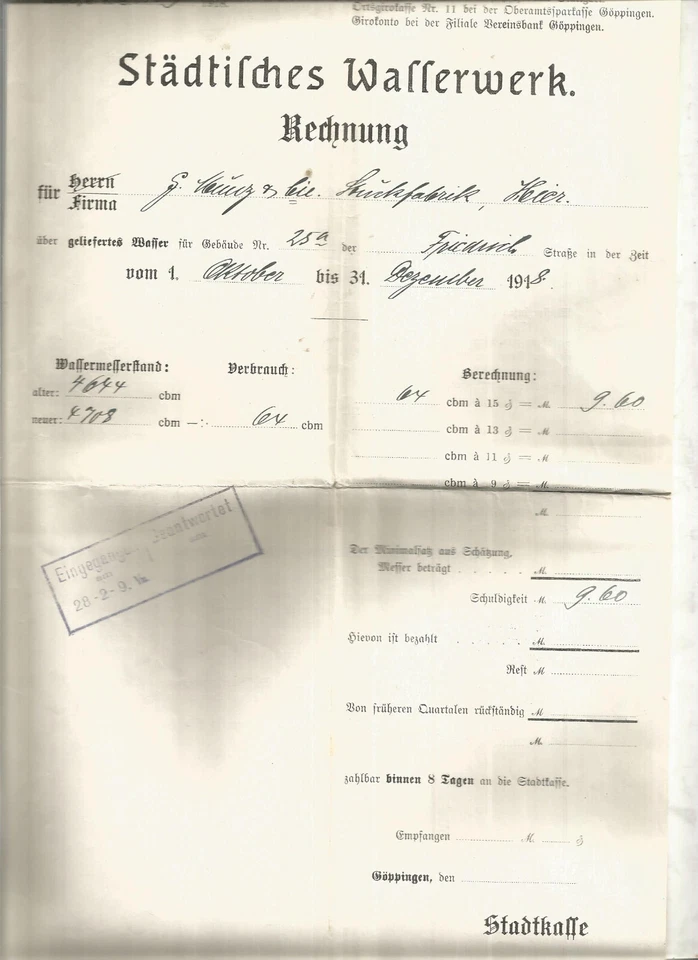 Ortsgirokasse Nr. 11 bei der Oberamtsparkasse Göppingen.
Girokonto bei der Filiale Vereinsbank Göppingen.
Städtisches Wasserwerk.
Rechnung
für Herrn
Firma G. Münz & Cie. Stückfabrik, Hier.
über geliefertes Wasser für Gebäude Nr. 25a der Friedrich Straße in der Zeit
vom 1. Oktober bis 31. Dezember 1918.
Wassermesserstand: Verbrauch: Berechnung:
alter: 4644 cbm
neuer: 4708 cbm —:· 64 cbm
64 cbm à 15 ₰ = M. 9.60
cbm à 13 ₰ = M
cbm à 11 ₰ = M
cbm à 9 ₰ = M.
M.
Der Minimalsatz aus Schätzung.
Messer beträgt . . . . . M.
Schuldigkeit M. 9.60
Hievon ist bezahlt . . . . . M.
Rest M
Von früheren Quartalen rückständig M
M.
zahlbar binnen 8 Tagen an die Stadtkasse.
Empfangen M. ₰
Göppingen, den
Stadtkasse
Eingegangen Beantwortet
28-2-9.